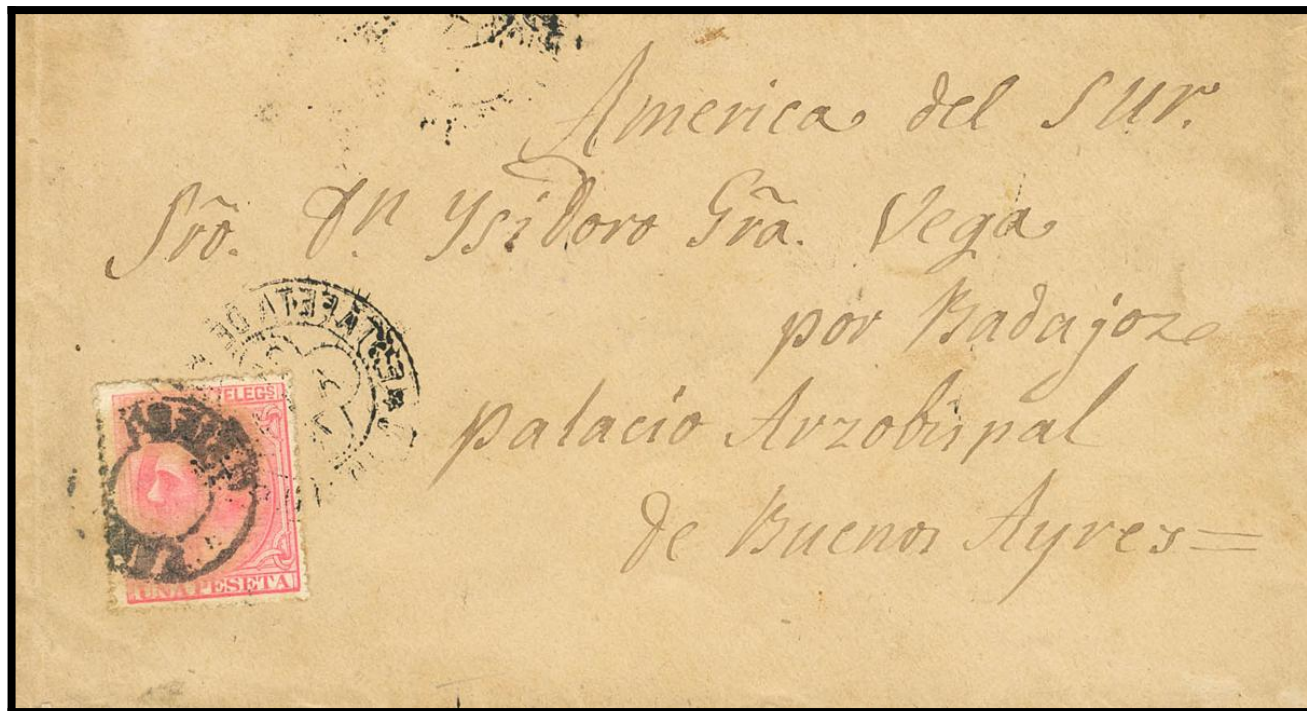 America del Sur.
Srō. Dn Ysidoro Grã. Vega
por Badajoz
palacio Arzobispal
de Buenos Ayres=
ESTAFETA DE
ELEGS
UNA PESETA